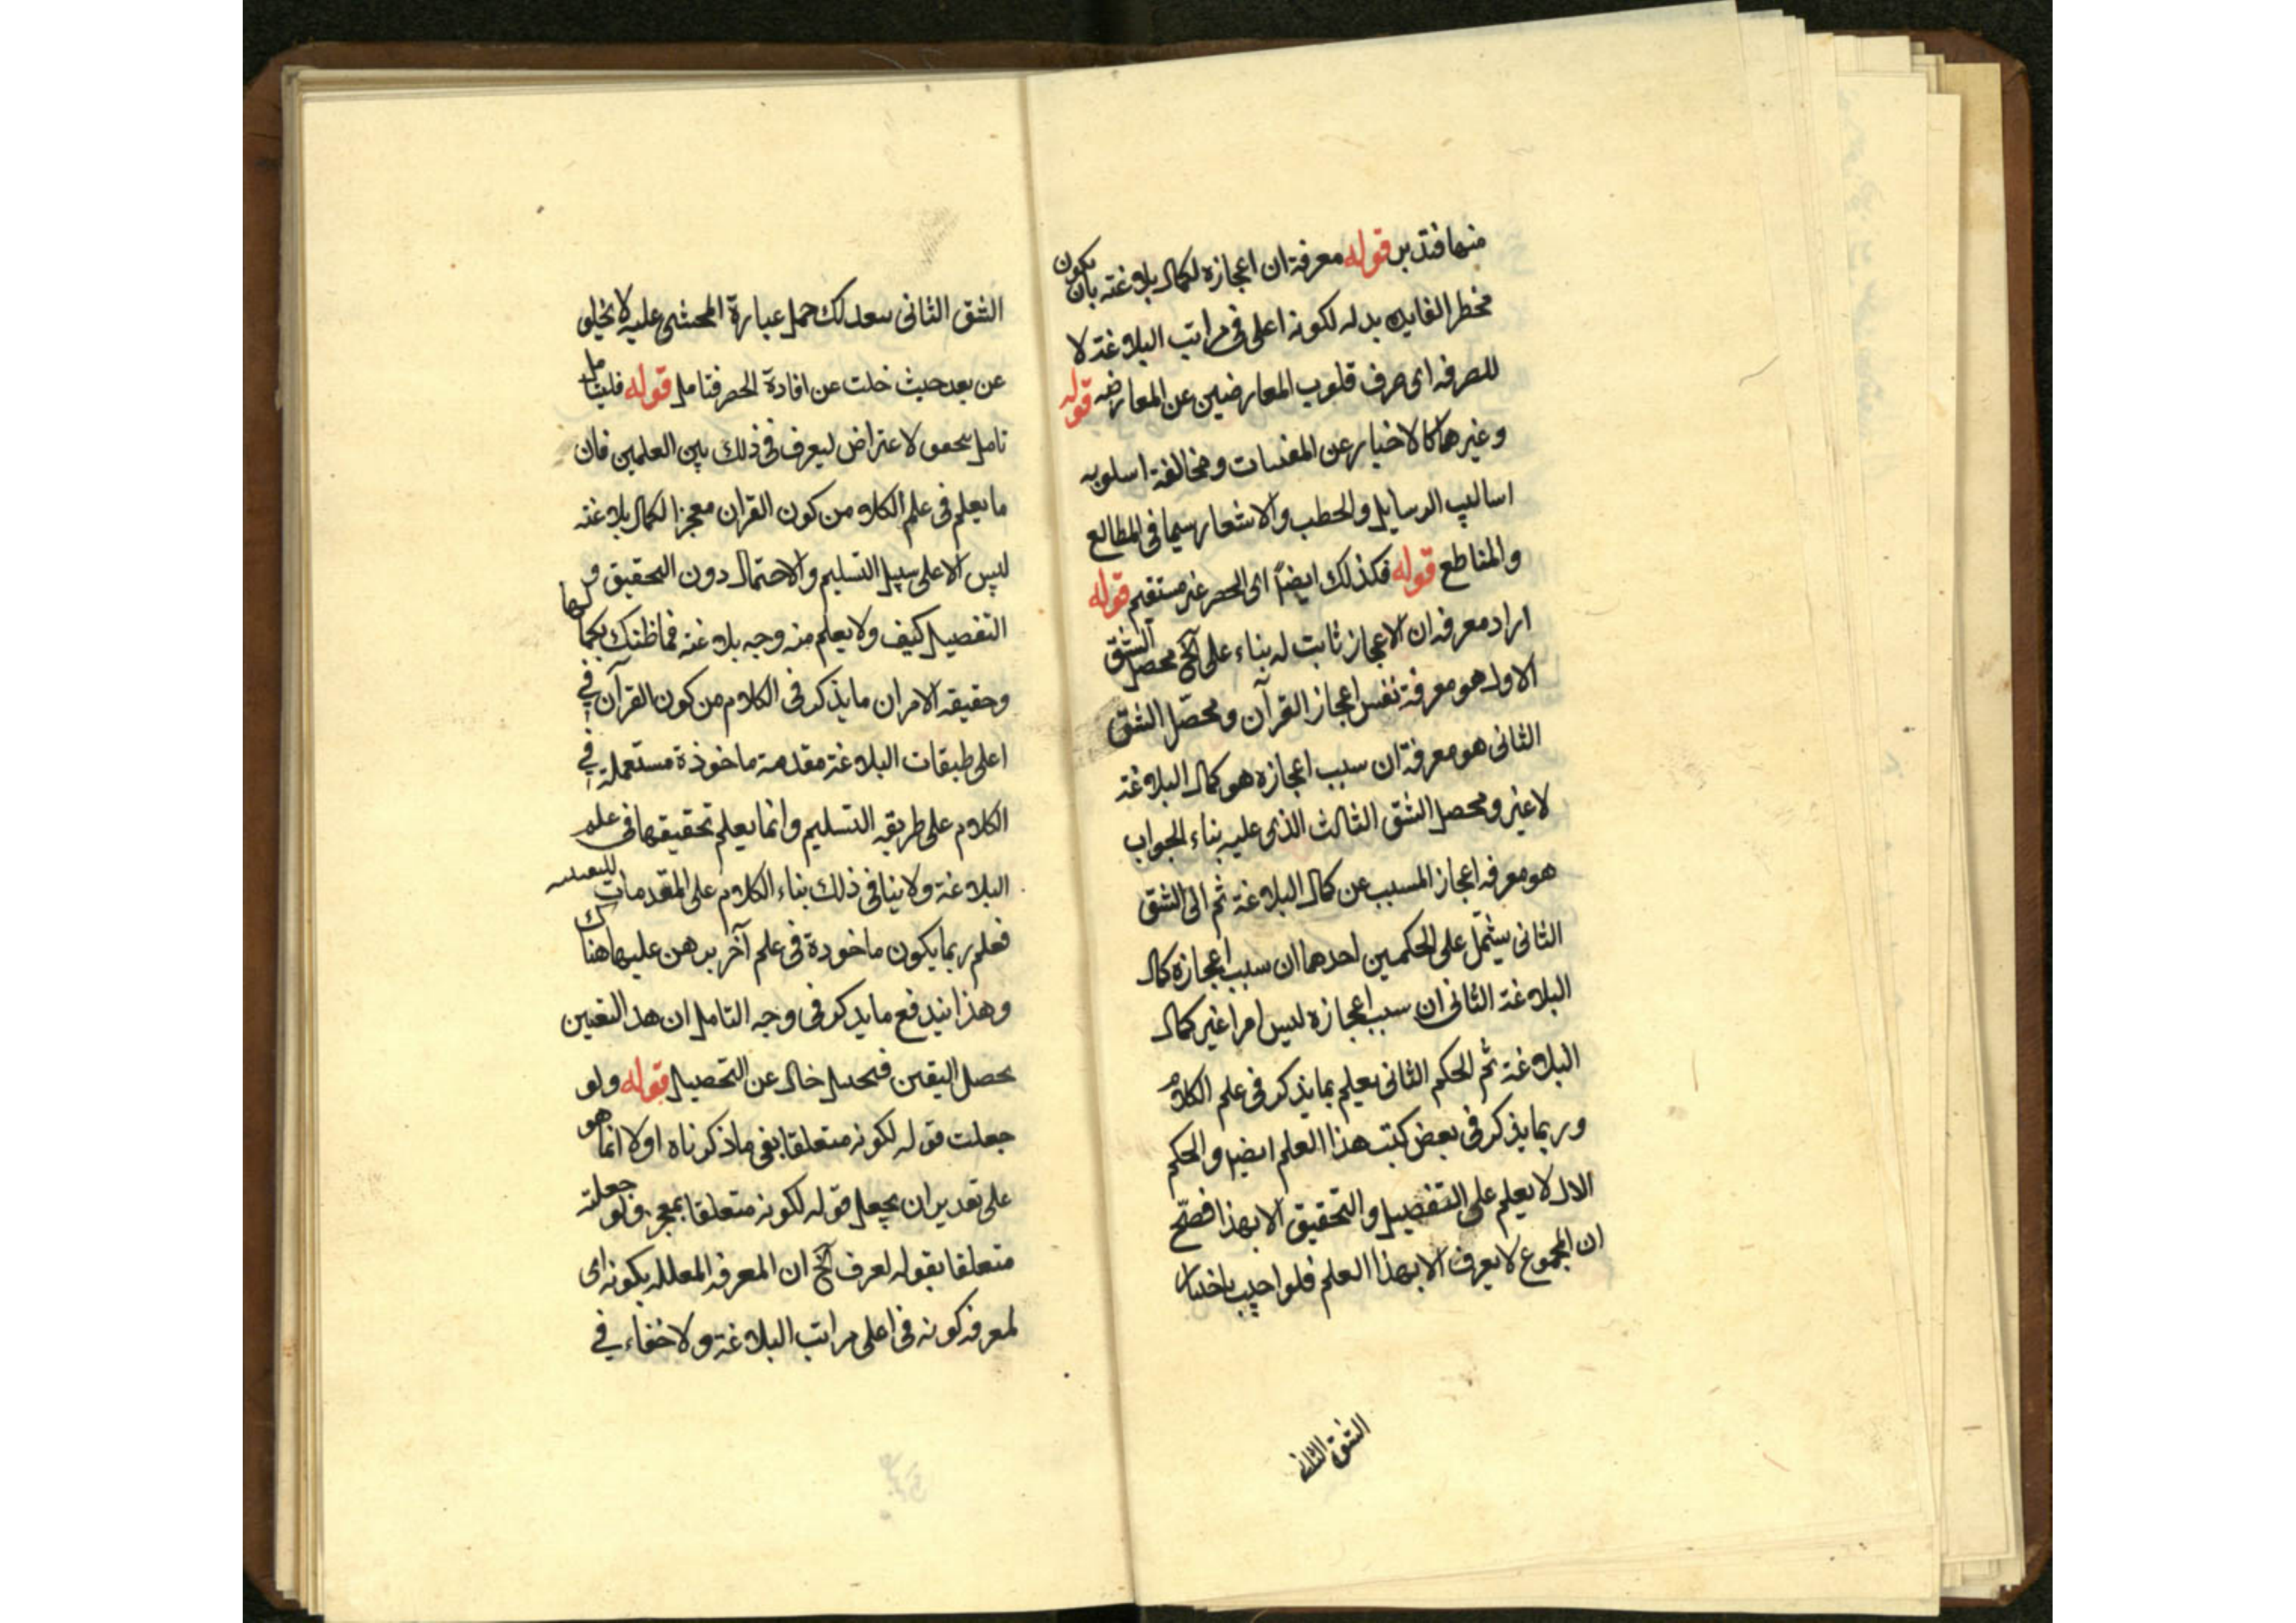 منهما فتدبر قوله معرفة ان اعجازه لكمال بلاغته بان يكون
محط الفايده بدله لكونه اعلى فى مراتب البلاغة لا
للصرفه اى صرف قلوب المعارضين عن المعارضه قوله
وغيرهما كالاخبار عن المغيبات ومخالفة اسلوبه
اساليب الرسايل والخطب والاشعار سيما فى المطالع
والمقاطع قوله فكذلك ايضاً اى الحصر غير مستقيم قوله
اراد معرفه ان الاعجاز ثابت له بناء على آلخ محصل الشق
الاول هو معرفة نفس اعجاز القرآن ومحصّل الشق
الثانى هو معرفة ان سبب اعجازه هو كمال البلاغة
لا غير ومحصل الشق الثالث الذى عليه بناء الجواب
هو معرفه اعجاز المسبب عن كمال البلاغة ثم الى الشق
الثانى يشتمل على الحكمين احدهما ان سبب اعجازه كمال
البلاغة الثانى ان سبب اعجازه ليس امرا غير كمال
البلاغة ثم الحكم الثانى يعلم بما يذكر فى علم الكلام
وربما يذكر فى بعض كتب هذا العلم ايضا والحكم
الاول لا يعلم على التفصيل والتحقيق الا بهذا فصّح
ان المجموع لا يعرف الا بهذا العلم فلو اجيب باختيار
الشق الثانى
الشق الثانى بعد لك حمل عبارة المحشى عليه لا يخلو
عن بعد حيث خلت عن افادة الحصر فتامل قوله فليتامل
تامل لا عتراض ليعرف فى ذلك بين العلمين فان
ما يعلم فى علم الكلام من كون القران معجزا لكمال بلاغته
ليس الا على سبيل التسليم والاحتمال دون التحقيق و
التفصيل كيف ولا يعلم منه وجه بلاغته فما ظنك بكمالها
وحقيقه الامر ان ما يذكر فى الكلام من كون القرآن فى
اعلى طبقات البلاغة مقدمة ماخوذة مستعملة فى
الكلام على طريقه التسليم وانما يعلم تحقيقها فى علم
البلاغة ولا ينافى ذلك بناء الكلام على المقدمات
فعلم ربما يكون ماخوذة فى علم آخر برهن عليها هناك
وهذا يندفع ما يذكر فى وجه التامل ان هذ اليقين
يحصل اليقين خال عن التحصيل قوله ولو
جعلت قوله لكونه متعلقا بفى ما ذكرناه اولا انما هو
على تقدير ان يجعل قوله لكونه متعلقا بمعجز ولو جعلته
متعلقا بقوله لعرف آلخ ان المعرفه المعلله بكونه اى
لمعرفه كونه فى اعلى مراتب البلاغة ولا خفاء فى